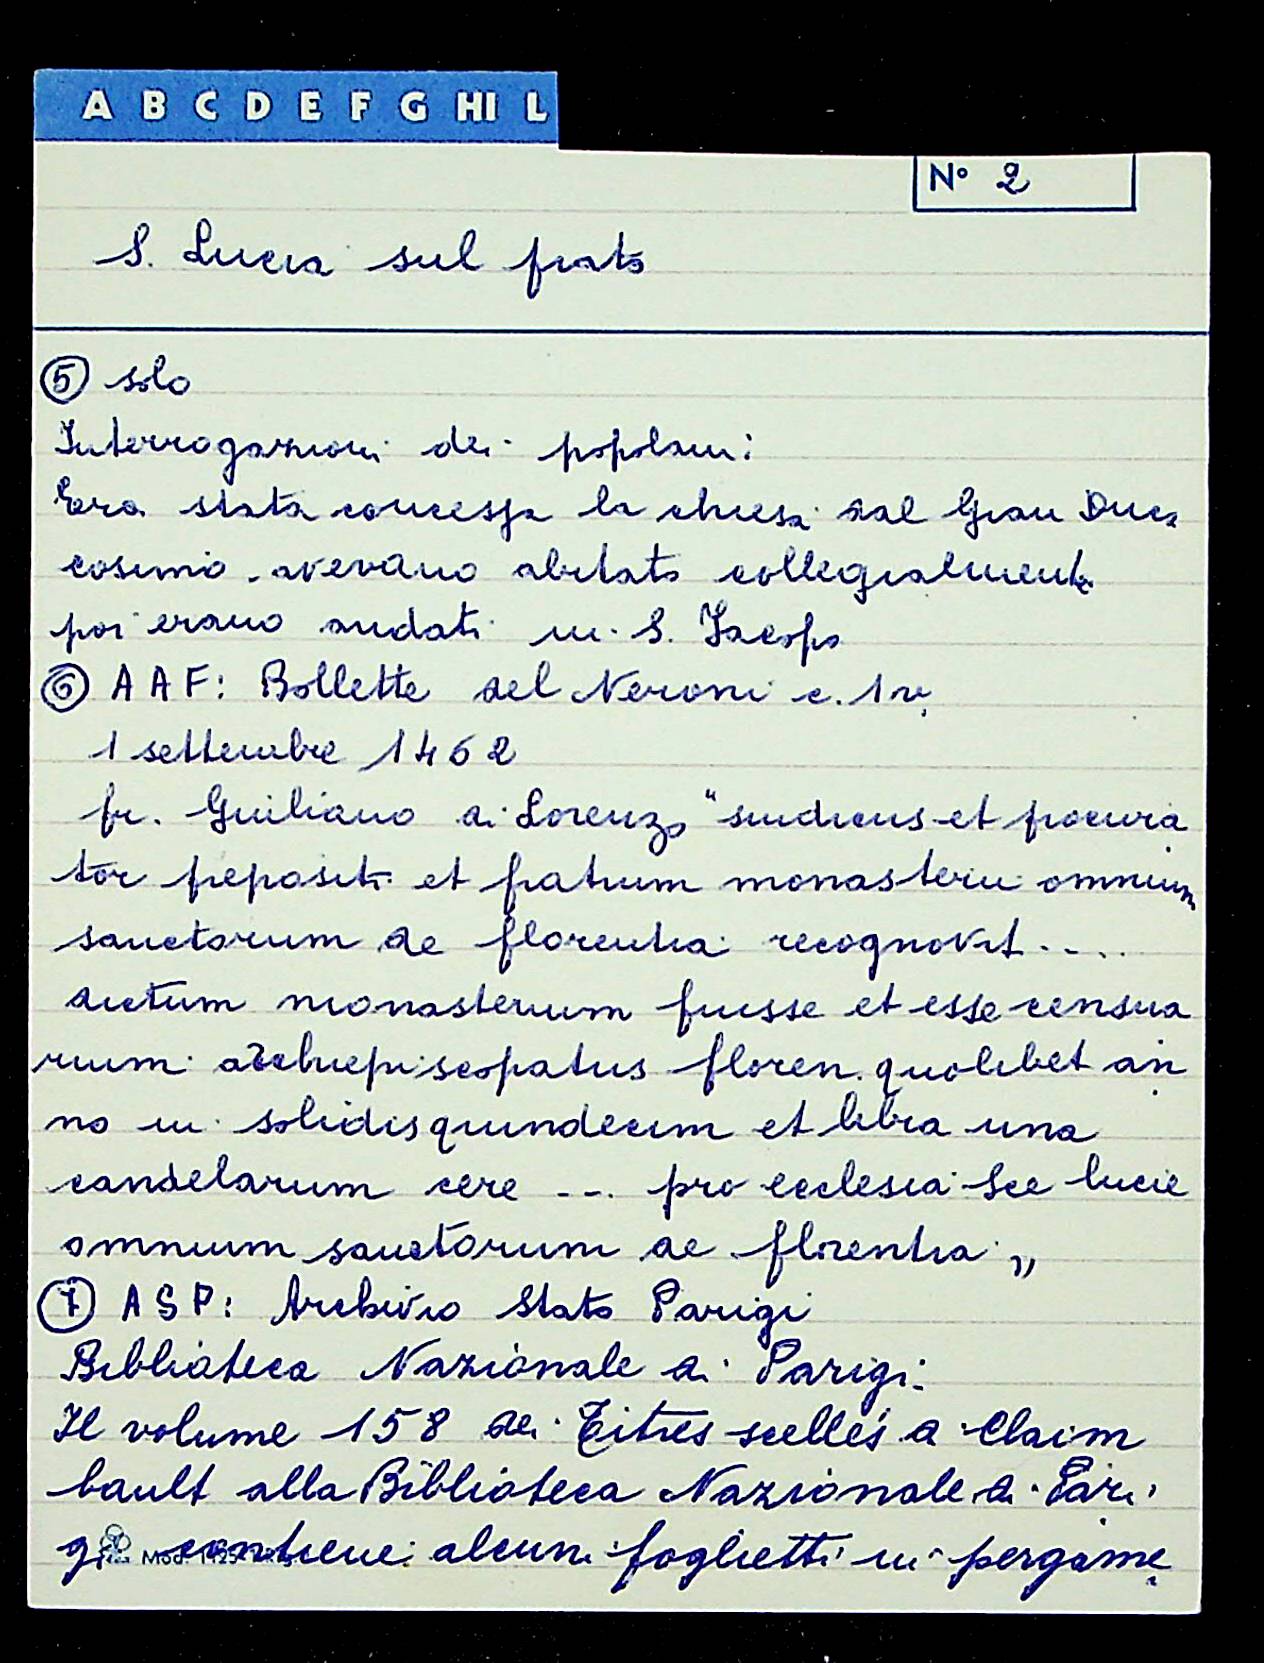 A B C D E F G HI L
N° 2
S. Lucia sul prato
⑤ solo
Interrogazioni dei popolani:
Era stata concessa la chiesa dal Gran Duca
Cosimo. avevano abitato collegialmente
poi erano andati in S. Jacopo
⑥ AAF: Bollette del Neroni c. 1v,
1 settembre 1462
fr. Giuliano di Lorenzo "sindicus et procura
tor prepositi et fratrum monasterii omnium
sanctorum de florentia recognovit ....
dictum monasterium fuisse et esse censua
rium archiepiscopatus floren. quolibet an
no in solidis quindecim et libra una
candelarum cere ... pro ecclesia Sce lucie
omnium sanctorum de florentia"
⑦ ASP: Archivio Stato Parigi
Biblioteca Nazionale di Parigi.
Il volume 158 dei Titres scellés di Claim
bault alla Biblioteca Nazionale di Pari
gi contiene alcuni foglietti in pergame